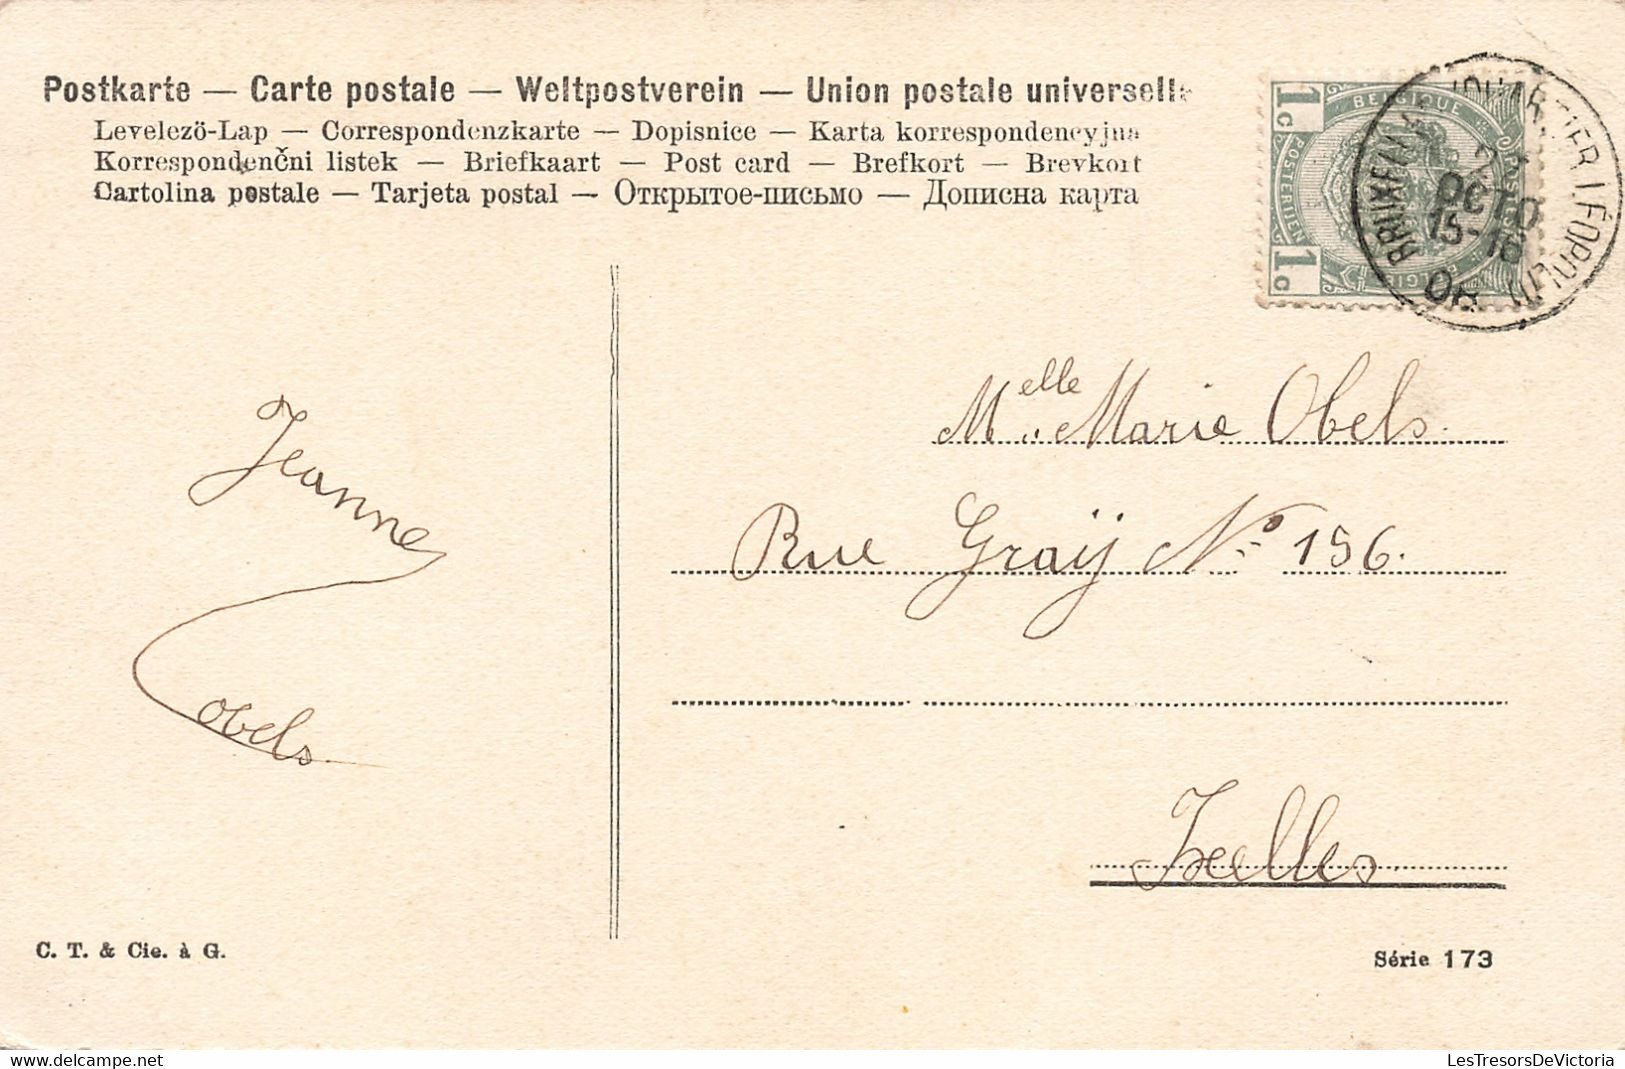 Postkarte — Carte postale — Weltpostverein — Union postale universelle
Levelező-Lap — Correspondenzkarte — Dopisnice — Karta korrespondencyjna
Korrespondenčni listek — Briefkaart — Post card — Brefkort — Brevkort
Cartolina postale — Tarjeta postal — Открытое-письмо — Дописна карта
1c BELGIQUE 1c
POSTERIJEN
BRUXELLES (QUARTIER LÉOPOLD)
OCTO
15-16
Melle Marie Obels.
Rue Graÿ No 156.
Ixelles
Jeanne
obels.
C. T. & Cie. à G.
Série 173
LesTresorsDeVictoria